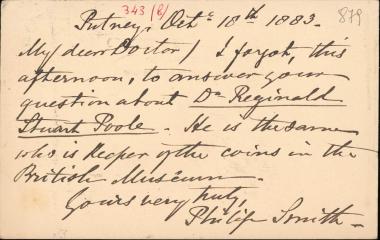 343 (6)
879
Putney, Octr 18th 1883.
My dear Doctor / I forgot, this
afternoon, to answer your
question about Dr Reginald
Stuart Poole. He is the same
who is Keeper of the coins in the
British Museum.
Yours very truly,
Philip Smith.